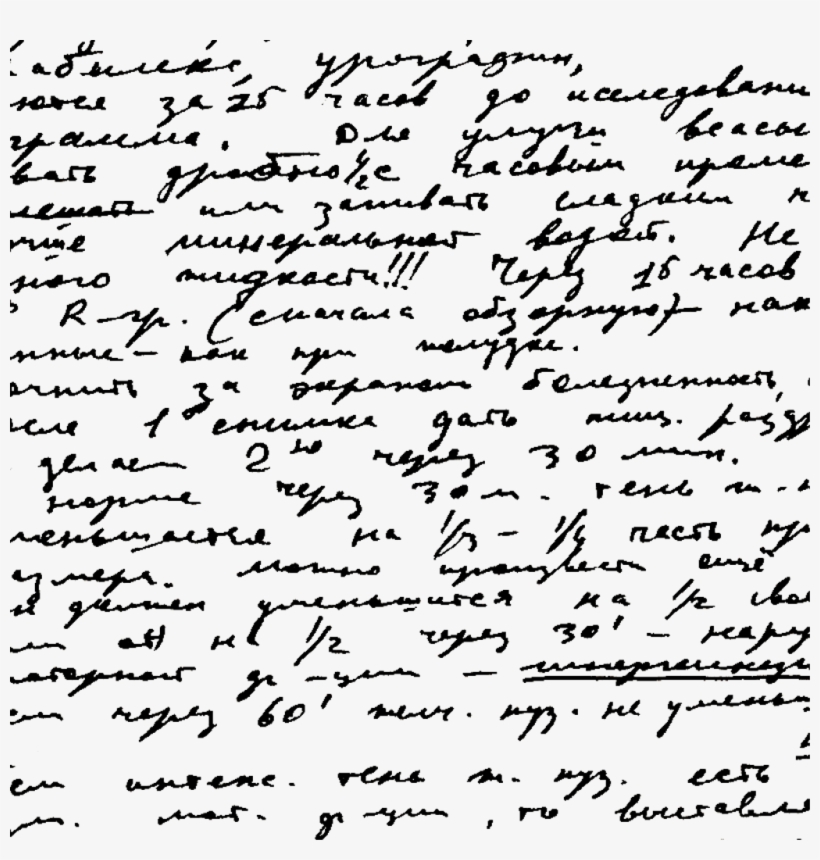 урографин,
за 15 часов до исследовани
грамма. Для улучш всасы
вать дробно ½ с часовым проме
или запивать сладким ч
минеральной водой. Не
ного жидкости!!! Через 15 часов
R-гр. (сначала обзорную) – нак
нные – как при желудке.
очнить за экраном болезненность,
сле 1 снимка дать жиш. раздр
делаем 2ю через 30 мин.
норме через 30 м. тень ж. п
меньшается на 1/3 – 1/4 часть пр
змера. можно произвести ещё
н должен уменьшится на 1/2 сво
на 1/2 через 30' – нару
моторной ф-ции –
сли через 60' желч. пуз. не уменьш
если интенс. тень ж. пуз. есть н
мот. ф-ции, то выставля